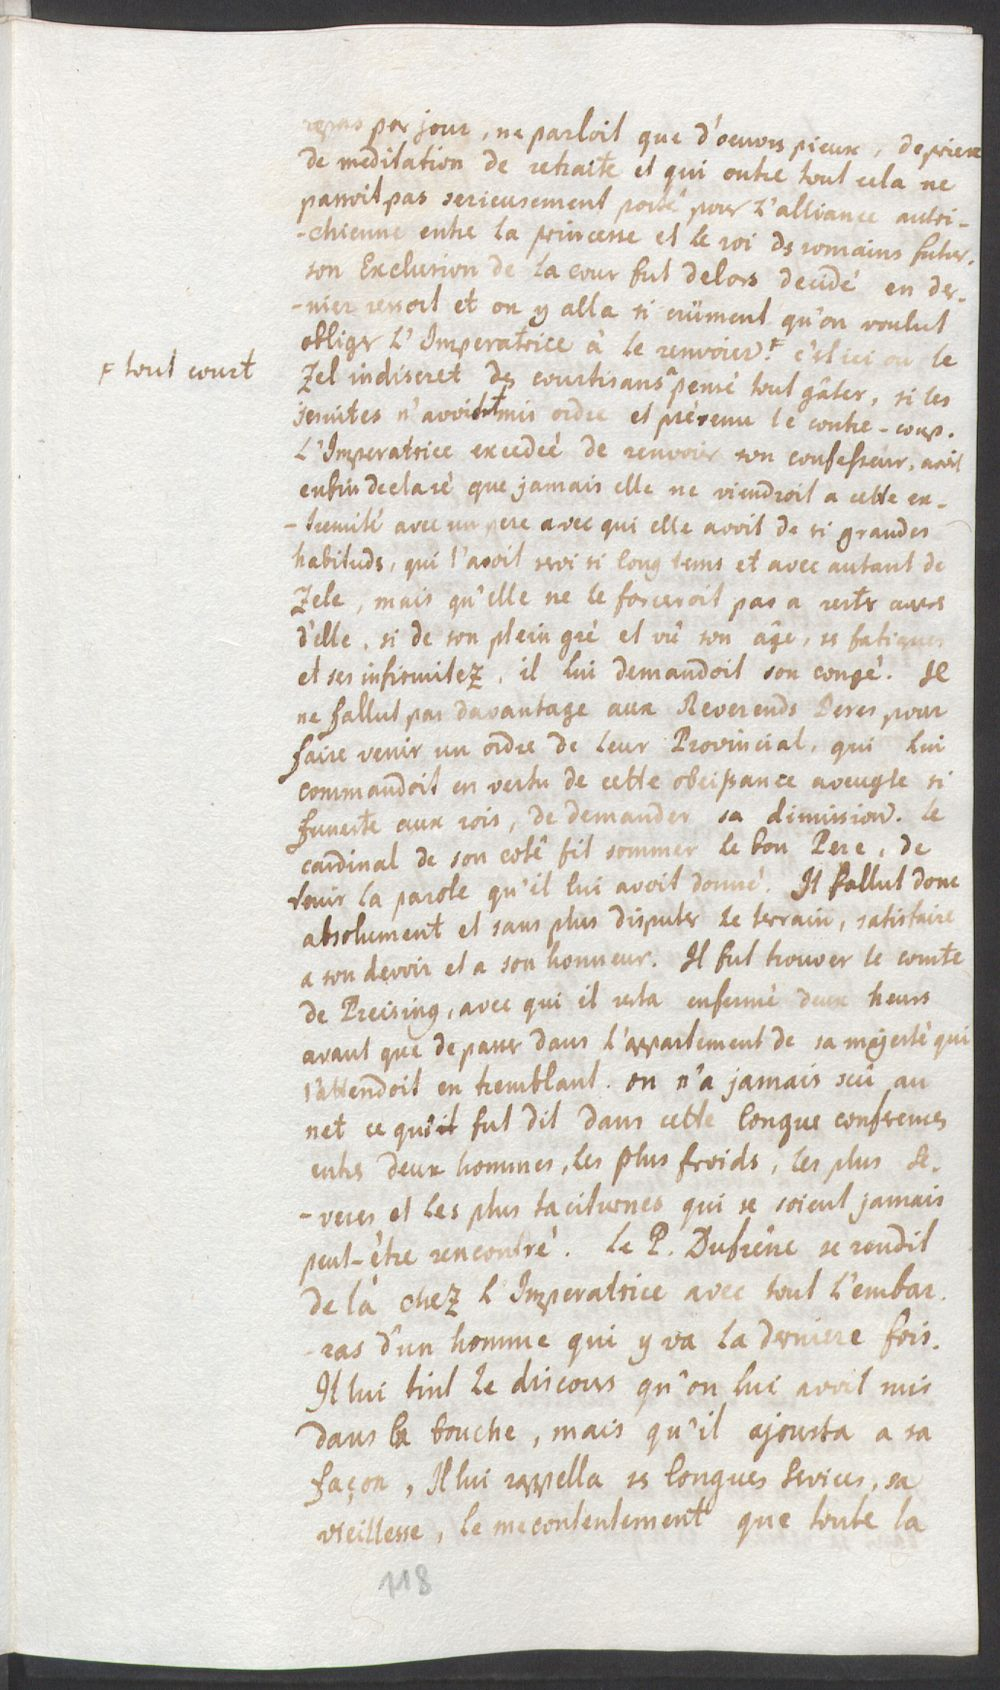 repas par jour, ne parloit que d'oeuvres pieux, de priere
de meditation de retraite et qui outre tout cela ne
parroit pas serieusement porté pour l'alliance autri-
-chienne entre la princesse et le roi des romains futur.
son Exclusion de la cour fut delors decidé en der-
-nier ressort et on y alla si crûment qu'on voulut
obliger L'Imperatrice à le renvoier.F c'est ici ou le
F tout court
Zel indiscret des courtisans a pensé tout gâter, si les
jesuites n'avoient mis ordre et prévenu le contre-coup.
L'Imperatrice excedée de renvoier son confesseur, avoit
enfin declaré que jamais elle ne viendroit a cette ex-
-tremité avec un pere avec qui elle avoit de si grandes
habituds, qui l'avoit servi si long tems et avec autant de
Zele, mais qu'elle ne le forceroit pas a rester aupres
d'elle, si de son plein gré et vû son âge, ses fatigues
et ses infirmitez, il lui demandoit son congé. Il
ne fallut pas davantage aux Reverends Peres pour
faire venir un ordre de leur Provincial, qui lui
commandoit en vertu de cette obeissance aveugle si
funeste aux rois, de demander sa dimission. le
cardinal de son coté fit sommer le bon Pere, de
tenir la parole qu'il lui avoit donné. Il fallut donc
absolument et sans plus disputer le terrain, satisfaire
a son devoir et a son honneur. Il fut trouver le comte
de Preising, avec qui il resta enfermé deux heurs
avant que de passer dans l'appartement de sa majesté qui
l'attendoit en tremblant. on n'a jamais scû au
net ce qui fut dit dans cette longue conferences
entre deux hommes, les plus froids, les plus se-
-veres et les plus taciturnes qui se soient jamais
peut-être rencontré. Le P. Dufrêne se rendit
de là chez L'Imperatrice avec tout l'embar-
-ras d'un homme qui y va la derniere fois.
Il lui tint le discours qu'on lui avoit mis
dans la bouche, mais qu'il ajousta a sa
façon, Il lui rappella ses longues services, sa
vieillesse, le mecontentement que toute la
118